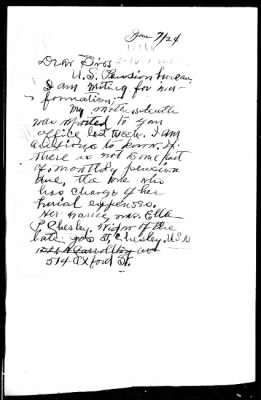 Jan 7/24
Dear Sirs
U.S. Pension bureau
I am writing for in-
formation.
My mother death
was reported to your
office last week. I am
anxious to know if
there is not some part
of monthly pension
due, the one who
has charge of her
burial expenses.
Her name, Mrs. Ella
C Chesley. Widow of the
late Chesley. USN
Carrollton av
514 Oxford St.